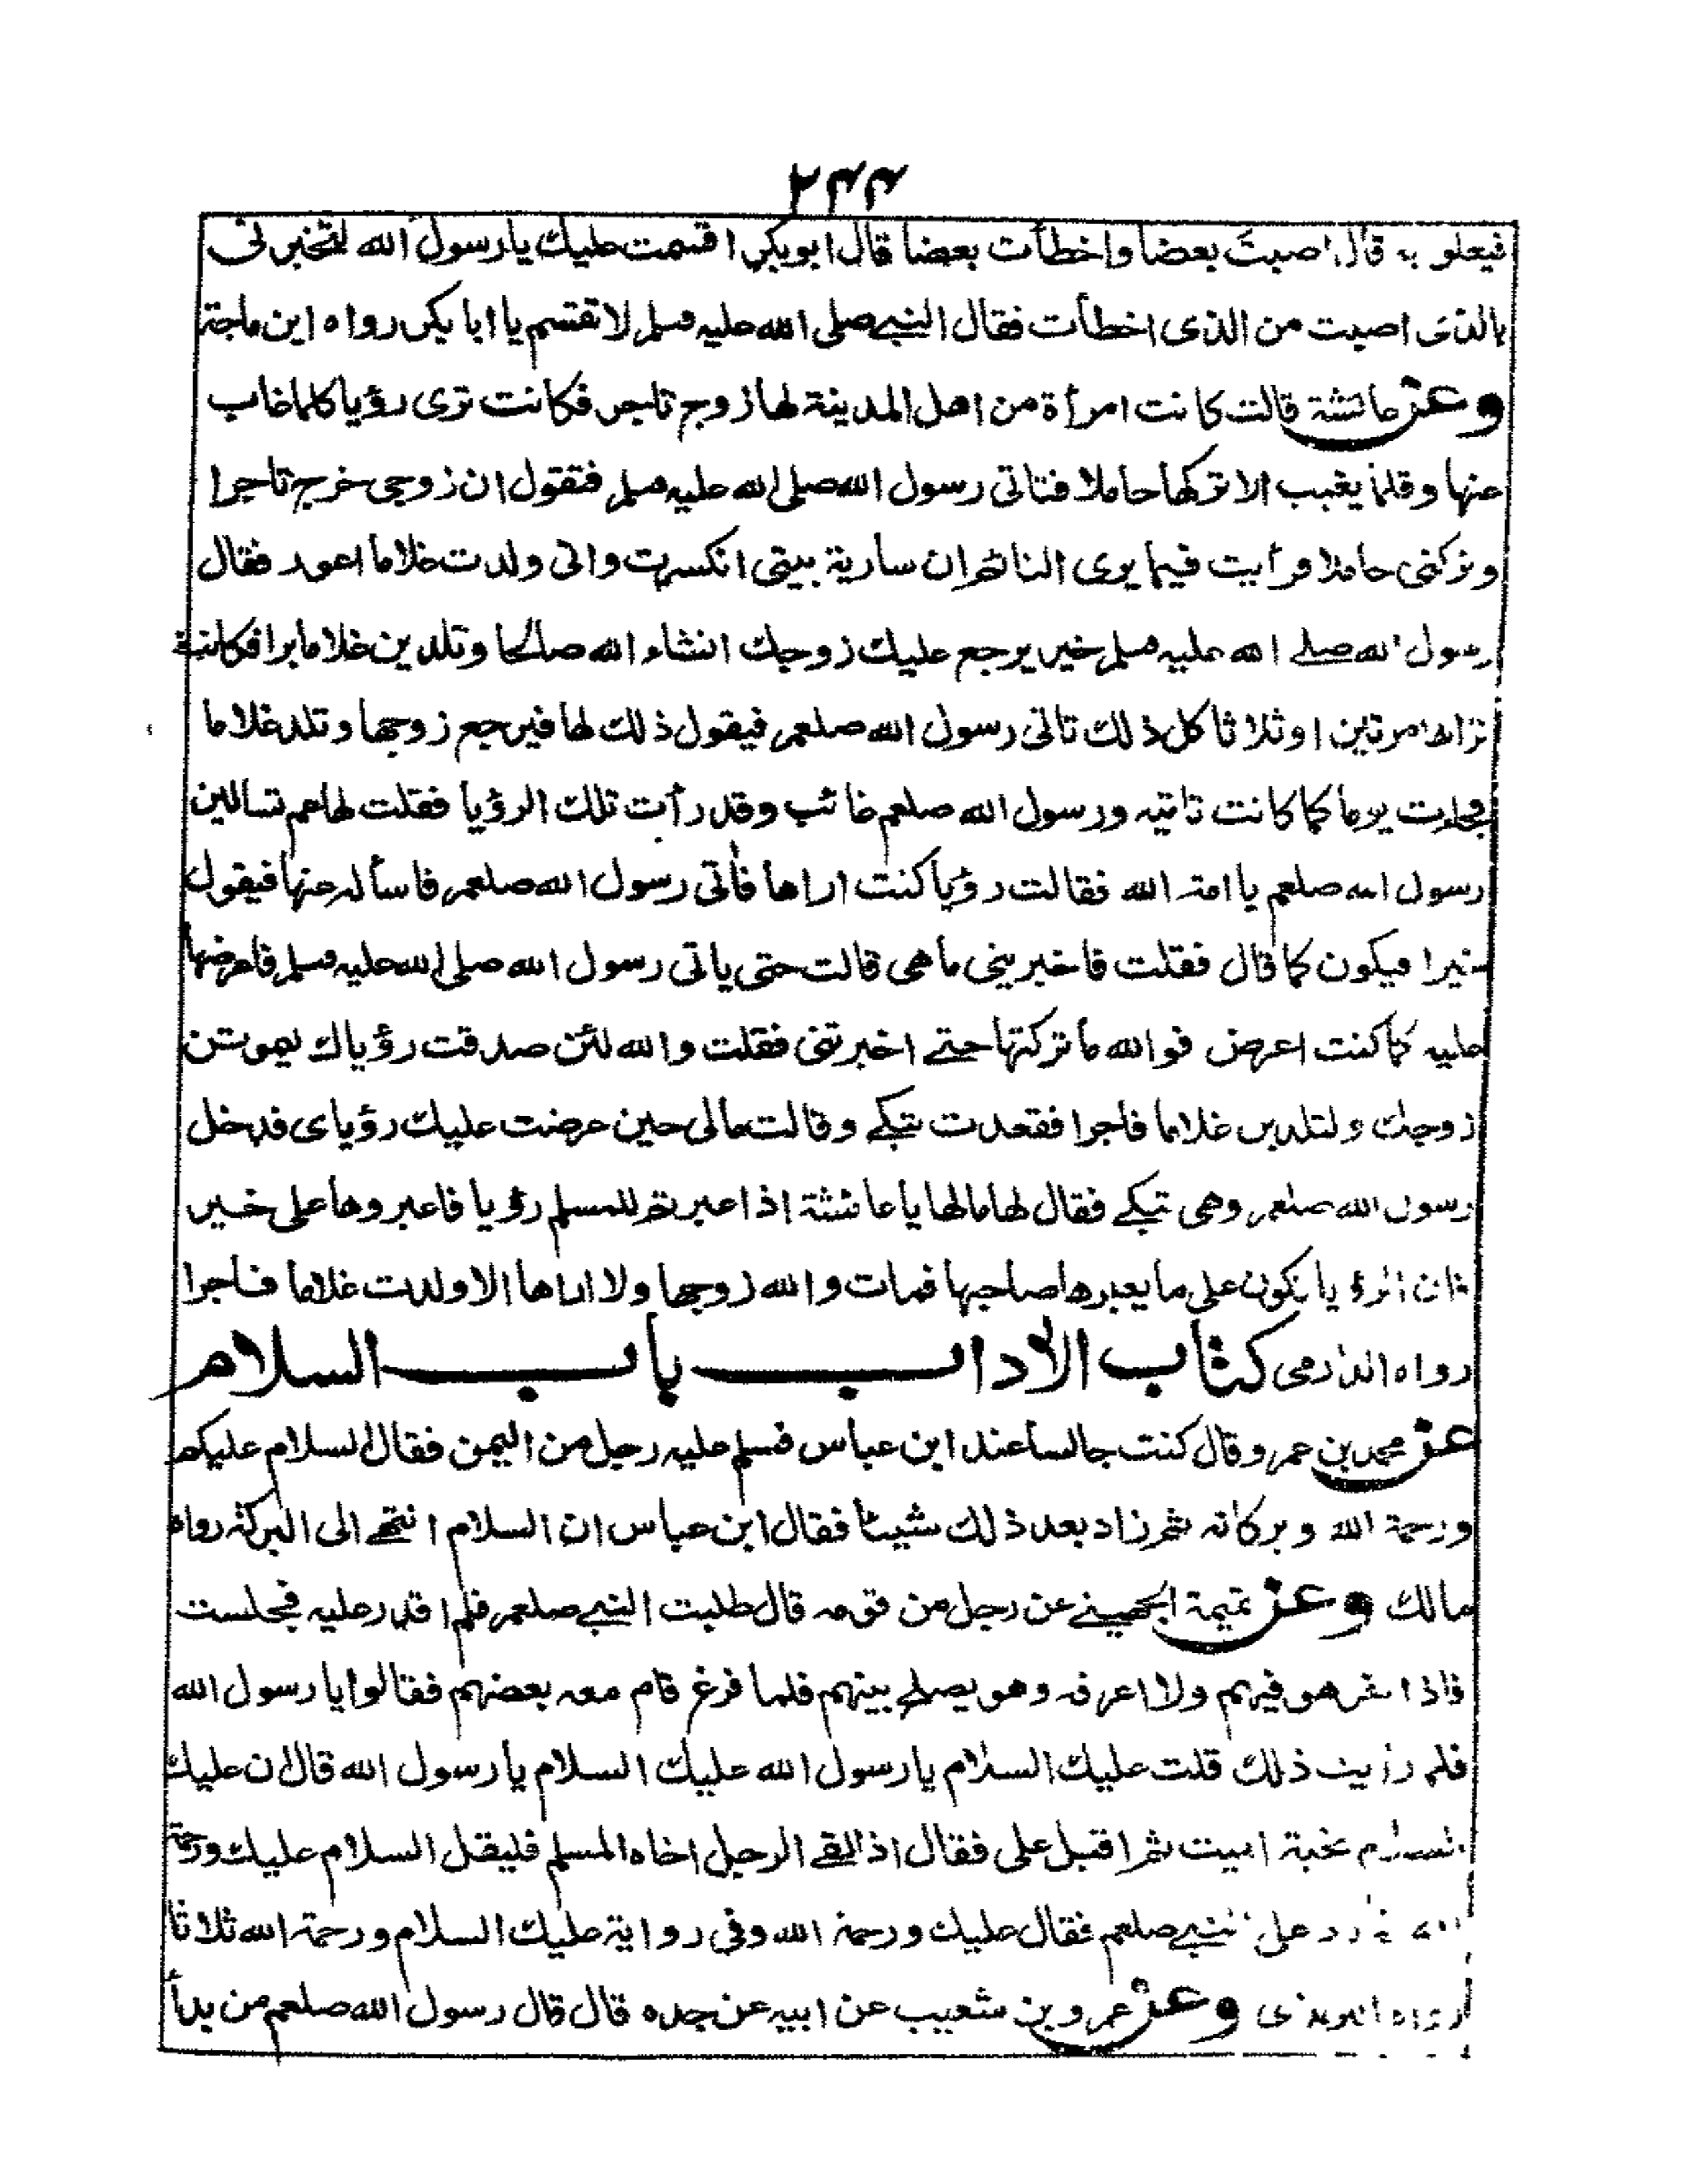 ٢٤٤
فيعلو به قال اصبت بعضا واخطأت بعضا قال ابوبكر اقسمت عليك يارسول الله لتخبرنى
بالذى اصبت من الذى اخطأت فقال النبے صلى الله عليه وسلم لا تقسم يا ابا بكر رواه ابن ماجة
وعن عائشة قالت كانت امرأة من اهل المدينة لها زوج تاجر فكانت ترى رؤيا كلما غاب
عنها وقلما يغيب الا تركها حاملا فتاتى رسول الله صلى الله عليه وسلم فتقول ان زوجى خرج تاجرا
وتركنى حاملا فرأيت فيما يرى النائم ان سارية بيتى انكسرت وانى ولدت غلاما اعور فقال
رسول الله صلے الله عليه وسلم خير يرجع عليك زوجك انشاء الله صالحا وتلدين غلاما برا فكانت
تراها مرتين او ثلاثا كل ذلك تاتى رسول الله صلعم فيقول ذلك لها فيرجع زوجها وتلد غلاما
فجاءت يوما كما كانت تاتيه ورسول الله صلعم غائب وقد رأت تلك الرؤيا فقلت لها عم تسالين
رسول الله صلعم يا امة الله فقالت رؤيا كنت اراها فأتى رسول الله صلعم فاسأله عنها فيقول
خيرا فيكون كما قال فقلت فاخبرينى ما هى قالت حتى ياتى رسول الله صلى الله عليه وسلم فاعرضها
عليه كما كنت اعرض فوالله ما تركتها حتے اخبرتنى فقلت والله لئن صدقت رؤياك ليموتن
زوجك ولتلدين غلاما فاجرا فقعدت تبكے وقالت مالى حين عرضت عليك رؤياى فدخل
رسول الله صلعم وهى تبكے فقال لها مالها يا عائشة اذا عبرتم للمسلم رؤيا فاعبروها على خير
فان الرؤيا تكون على ما يعبرها صاحبها فمات والله زوجها ولا اراها الا ولدت غلاما فاجرا
رواه الدارمى كتاب الآداب باب السلام
عن محمد بن عمرو قال كنت جالسا عند ابن عباس فسلم عليه رجل من اليمن فقال السلام عليكم
ورحمة الله وبركاته ثم زاد بعد ذلك شيئا فقال ابن عباس ان السلام انتهے الى البركة رواه
مالك وعن تميمة الجهينے عن رجل من قومه قال طلبت النبے صلعم فلم اقدر عليه فجلست
فاذا نفر هو فيهم ولا اعرفه وهو يصلح بينهم فلما فرغ قام معه بعضهم فقالوا يا رسول الله
فلما رأيت ذلك قلت عليك السلام يا رسول الله عليك السلام يا رسول الله قال ان عليك
السلام تحية الميت ثم اقبل على فقال اذا لقے الرجل اخاه المسلم فليقل السلام عليك ورحمة
الله ثم رد على النبے صلعم فقال عليك ورحمة الله وفى رواية عليك السلام ورحمة الله ثلاثا
رواه الترمذى وعن عمرو بن شعيب عن ابيه عن جده قال قال رسول الله صلعم من بدأ